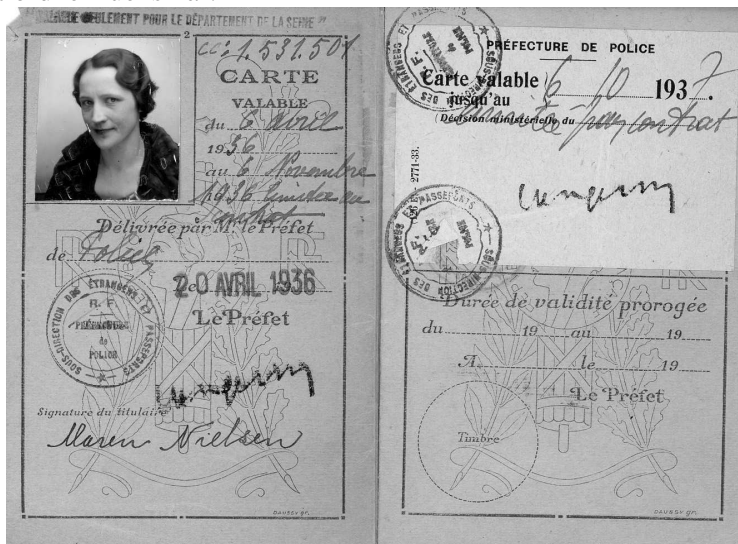 SEULEMENT POUR LE DÉPARTEMENT DE LA SEINE "
2
cc: 1.531.501
CARTE
VALABLE
du 6 avril
1936
au 6 Novembre
1936 limitée au
contrat
Délivrée par M. le Préfet
de Police
Le 20 AVRIL 1936
Le Préfet
SOUS-DIRECTION DES ÉTRANGERS ET PASSEPORTS
R. F.
PRÉFECTURE
de
POLICE
Signature du titulaire
Maren Nielsen
DAUSSY gr.
PRÉFECTURE DE POLICE
Carte valable 6 10 1937.
jusqu'au
(Décision ministérielle du
contrat
2771-33.
SOUS-DIRECTION DES ÉTRANGERS ET PASSEPORTS
Durée de validité prorogée
du 19 au 19
A le 19
Le Préfet
Timbre
DAUSSY gr.